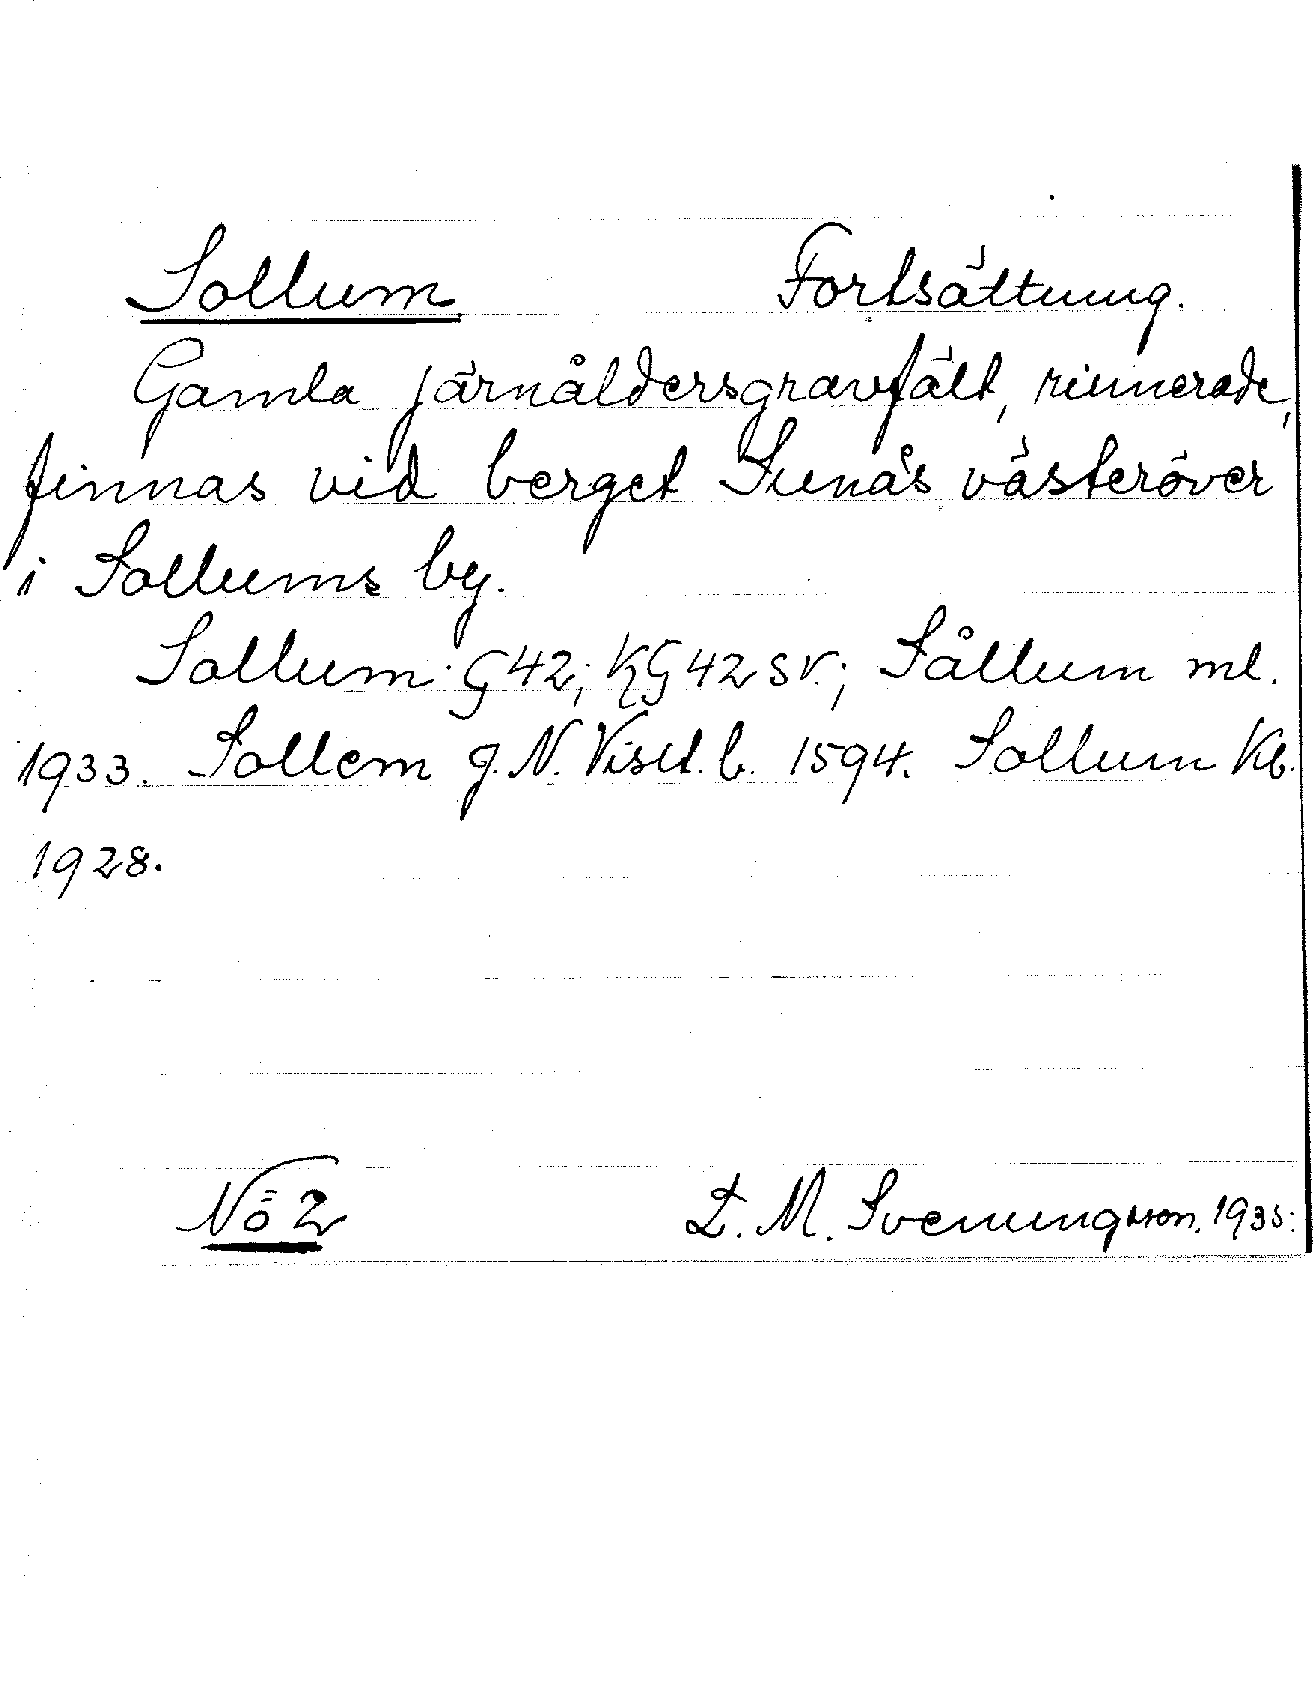 Sollum Fortsättning.
Gamla järnåldersgravfält, ruinerade,
finnas vid berget Sunås västeröver
i Sollums by.
Sollum G42; KG 42 SV.; Sållum ml.
1933. Sollem g. N. Visit. b. 1594. Sollum Kb.
1928.
Nö 2 L. M. Svenungsson. 1935.